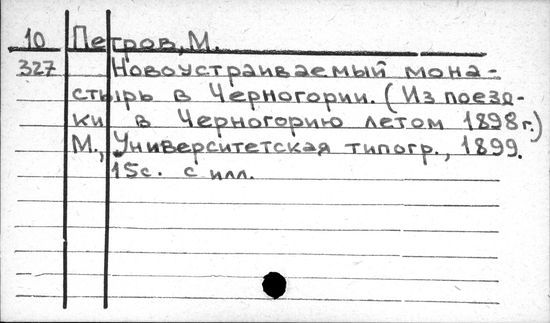 10 Петров, М.
327 Новоустраиваемый мона-
стырь в Черногории. (Из поезд-
ки в Черногорию летом 1898 г.)
М., Университетская типогр., 1899.
15с. с илл.